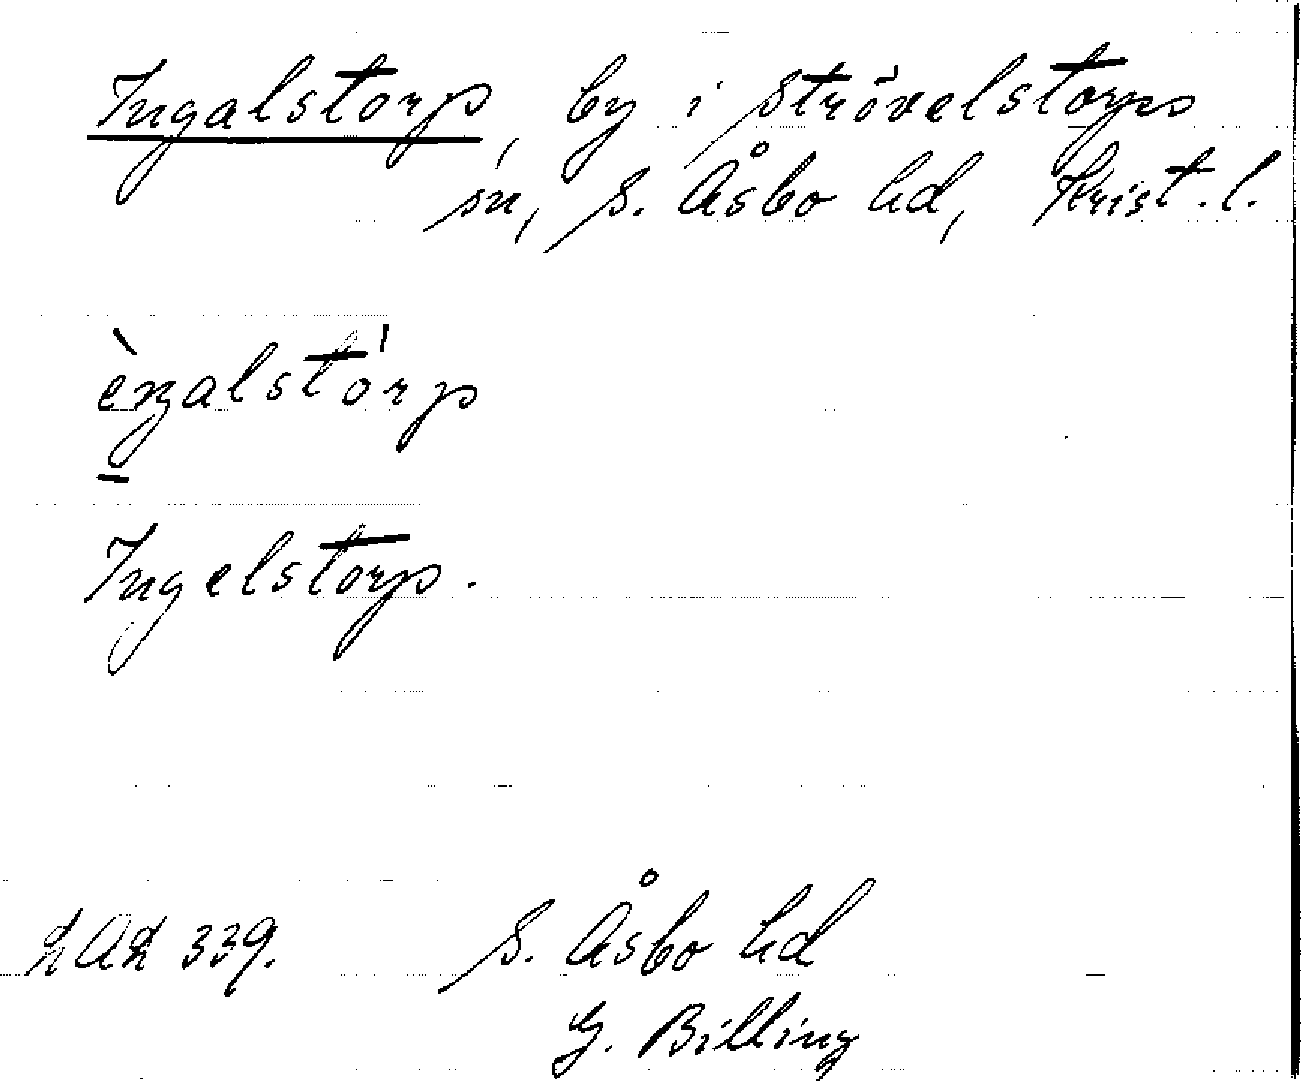 Ingalstorp, by i Strövelstorps
sn, S. Åsbo hd, Krist. l.
èŋalstórp
Ingelstorp.
LAL 339.
S. Åsbo hd
G. Billing